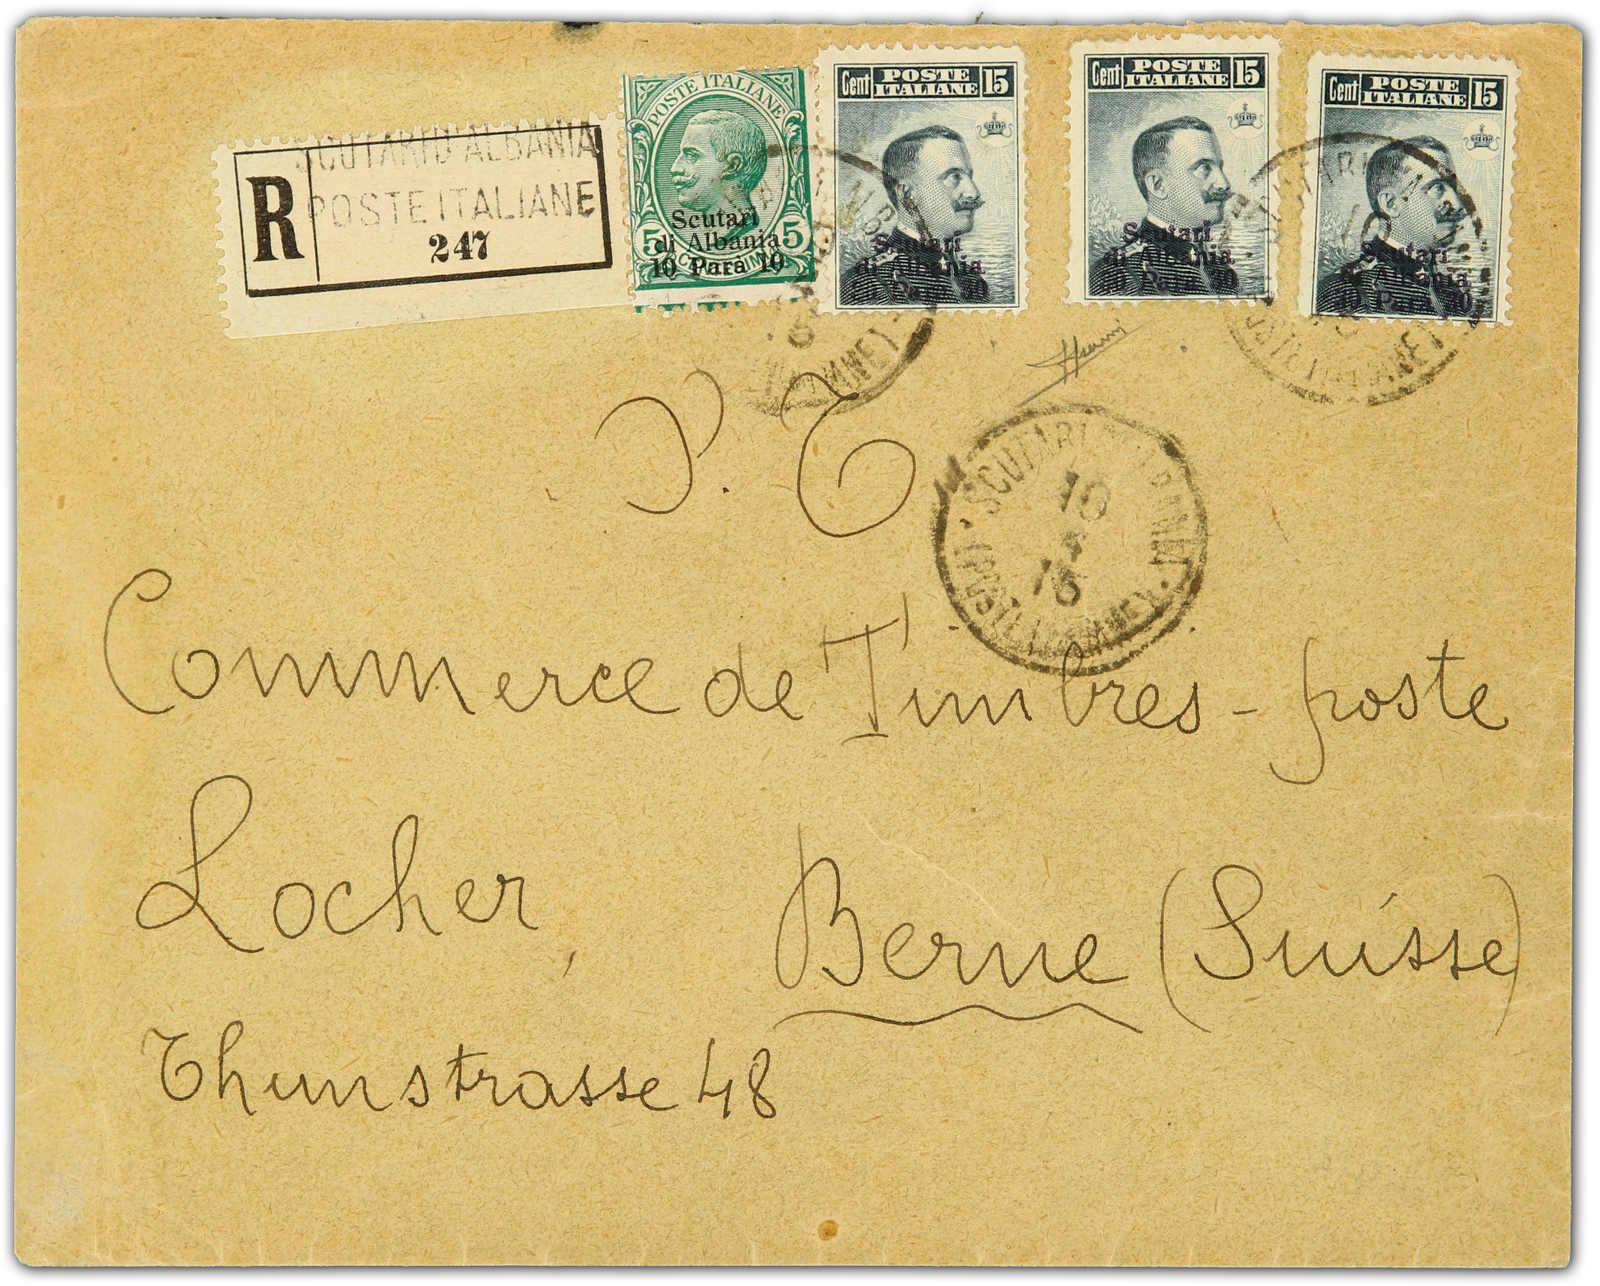 SCUTARI D'ALBANIA
POSTE ITALIANE
R
247
POSTE ITALIANE
5 5
Scutari
di Albania
10 Para 10
Cent POSTE ITALIANE 15
Scutari
di Albania
30 Para 30
Cent POSTE ITALIANE 15
Scutari
di Albania
30 Para 30
Cent POSTE ITALIANE 15
Scutari
di Albania
30 Para 30
SCUTARI D'ALBANIA
10
15
P. T.
Commerce de Timbres-poste
Locher,
Berne (Suisse)
Thunstrasse 48